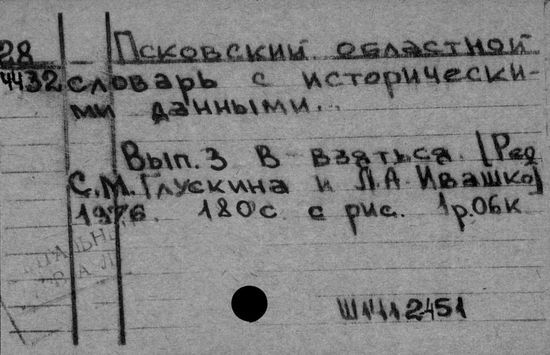 28 Псковский областной
4432 словарь с исторически-
ми данными...
Вып. 3 В - взяться. [Ред
С.М. Глускина и Л.А. Ивашко]
1976. 180с. с рис. 1р.06к